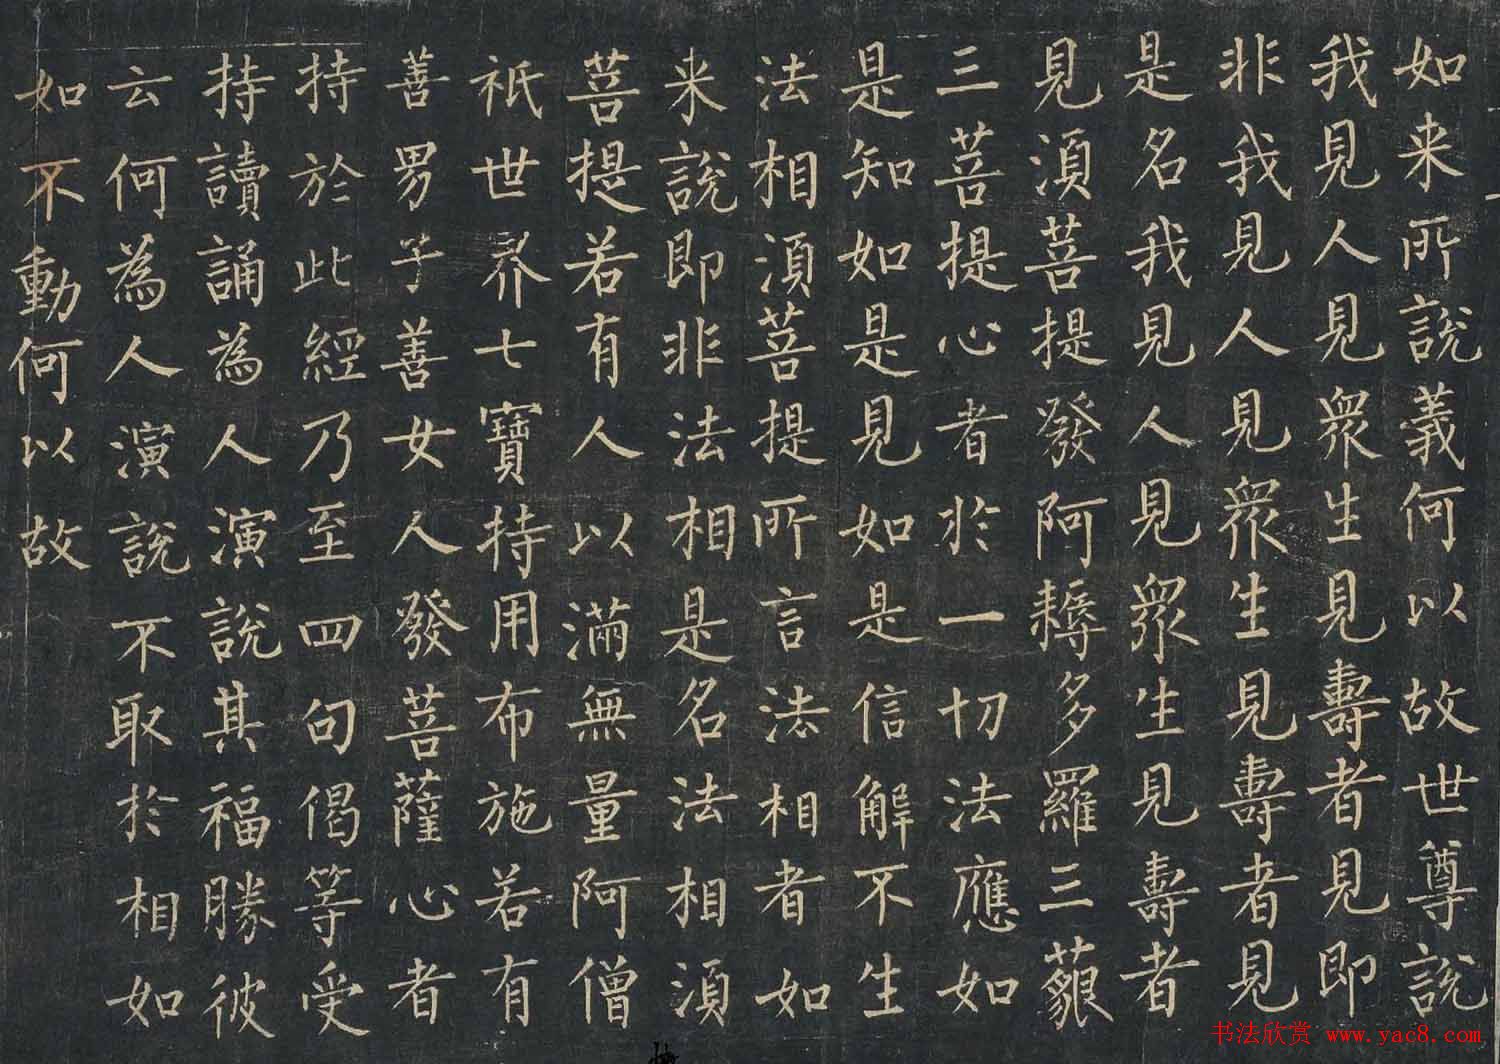 如来所說義何以故世尊說
我見人見衆生見壽者見即
非我見人見衆生見壽者見
是名我見人見衆生見壽者
見湏菩提發阿耨多羅三藐
三菩提心者於一切法應如
是知如是見如是信解不生
法相湏菩提所言法相者如
来說即非法相是名法相湏
菩提若有人以滿無量阿僧
祇世界七寶持用布施若有
善男子善女人發菩薩心者
持於此經乃至四句偈等受
持讀誦為人演說其福勝彼
云何為人演說不取於相如
如不動何以故
书法欣赏 www.yac8.com